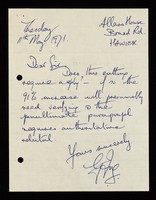 Tuesday
11th May 1971.
Allars House
Bourd Rd.
Hawick
Dear Sir,
Does this cutting
require a reply? - the
91% increase will presumably
need verifying & the
penultimate paragraph
requires authoritative
rebuttal
Yours sincerely